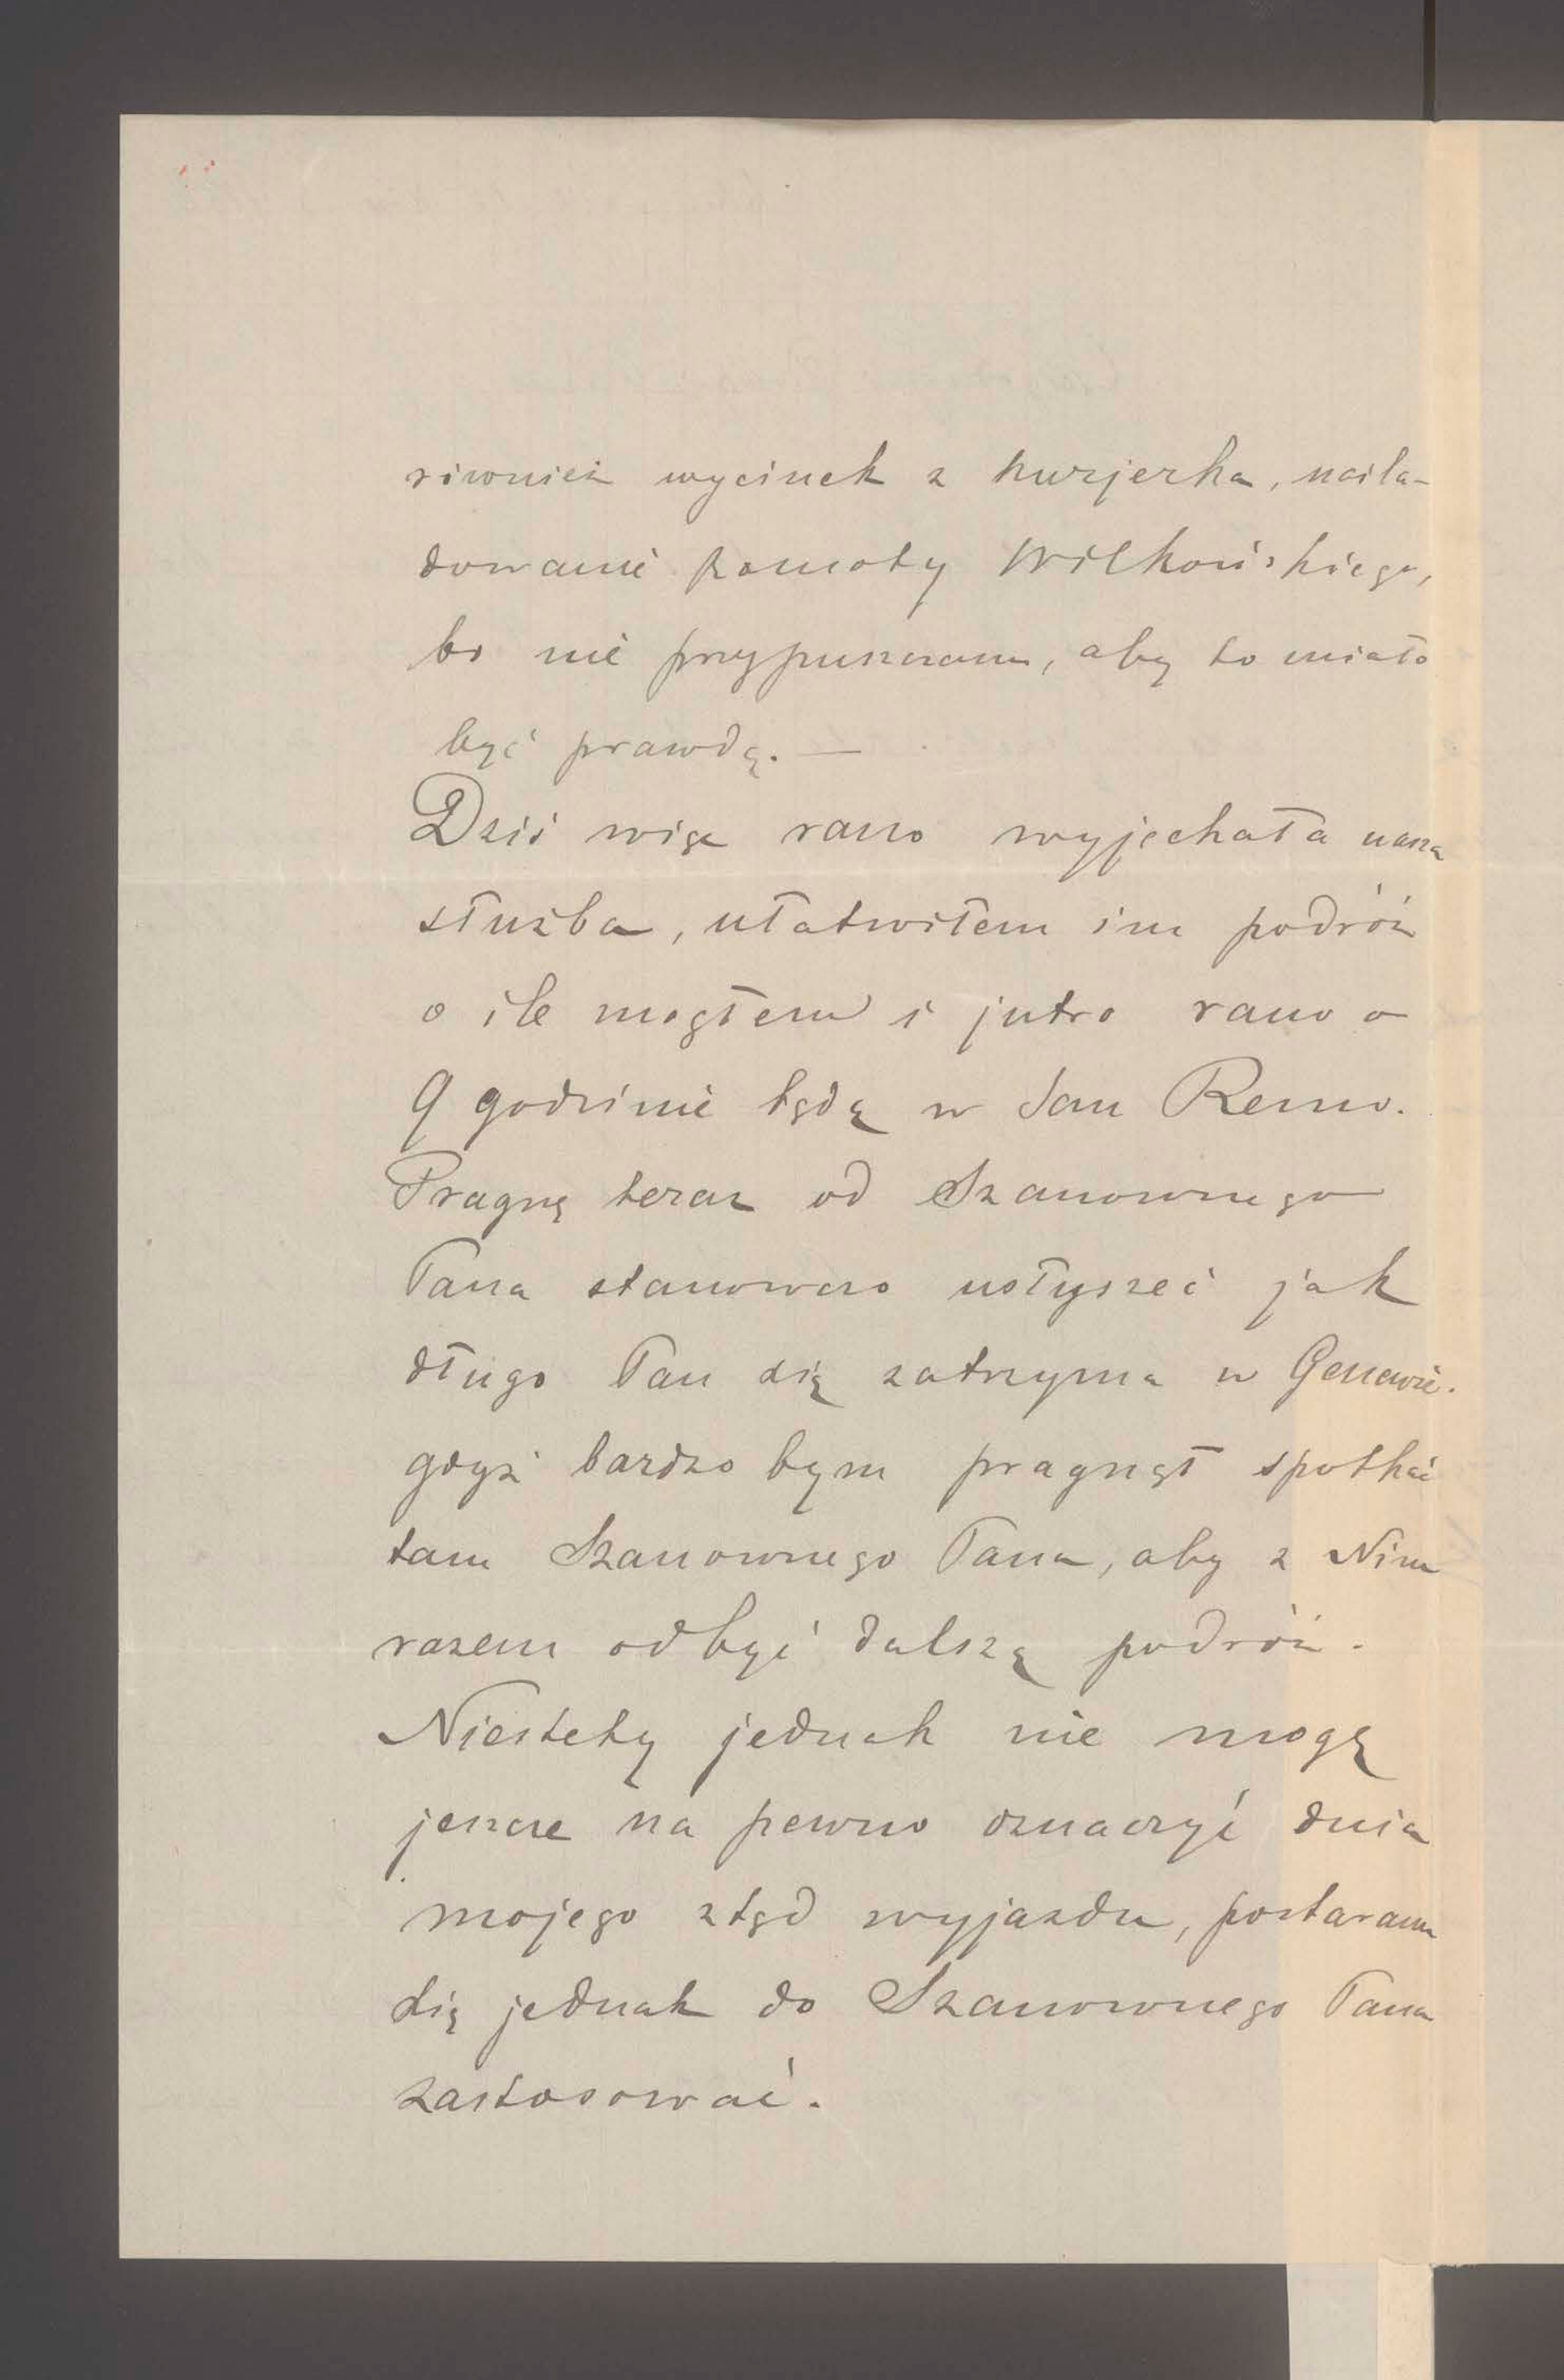 również wycinek z kurjerka, naśla-
dowanie ramoty Wilkońskiego,
bo nie przypuszczam, aby to miało
być prawdą. —
Dziś więc rano wyjechała nasza
służba, ułatwiłem im podróż
o ile mogłem i jutro rano o
9 godzinie będą w San Remo.
Pragnę teraz od Szanownego
Pana stanowczo usłyszeć jak
długo Pan się zatrzyma w Genewie.
gdyż bardzo bym pragnął spotkać
tam Szanownego Pana, aby z Nim
razem odbyć dalszą podróż.
Niestety jednak nie mogę
jeszcze na pewno oznaczyć dnia
mojego ztąd wyjazdu, postaram
się jednak do Szanownego Pana
zastosować.